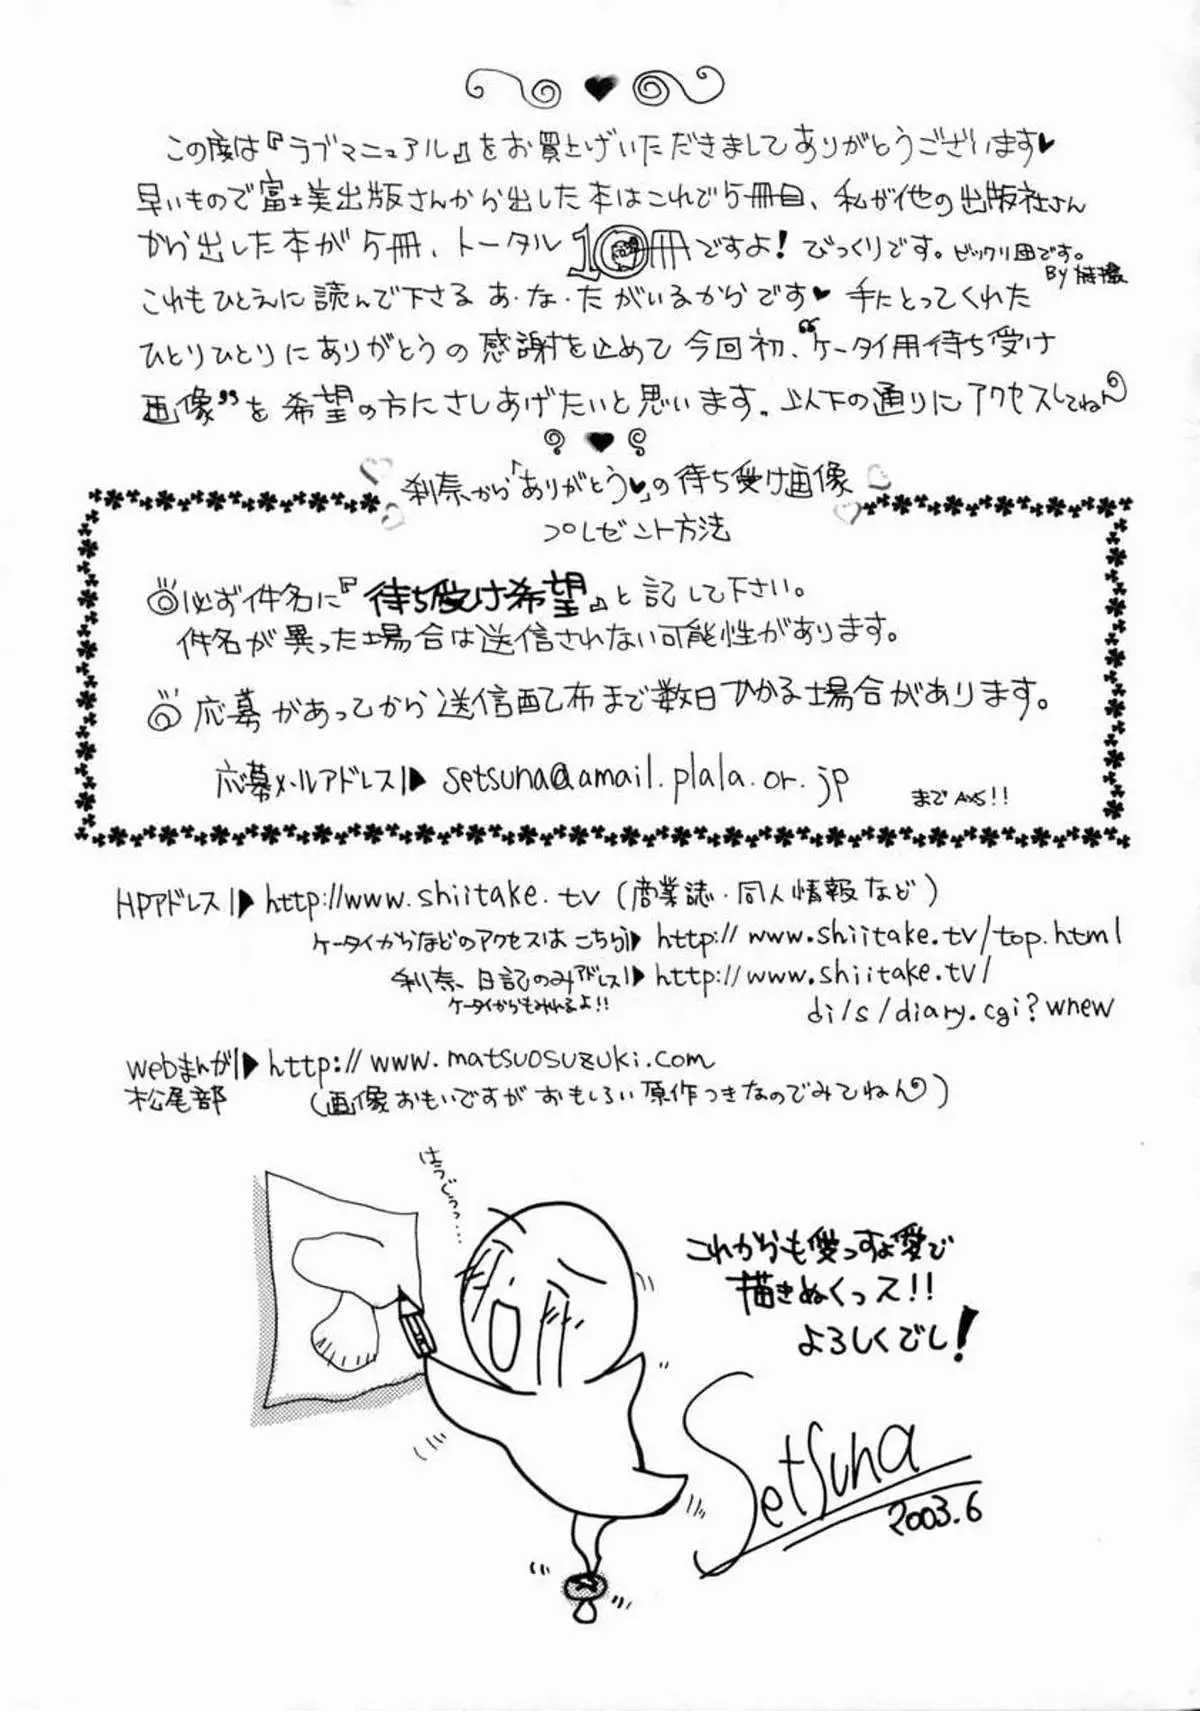 この度は『ラブマニュアル』をお買上げいただきましてありがとうございます♥
早いもので富士美出版さんから出した本はこれで5冊目、私が他の出版社さん
から出した本が5冊、トータル10冊ですよ！びっくりです。ビックリ団です。
By
これもひとえに読んで下さるあ・な・たがいるからです♥手にとってくれた
ひとりひとりにありがとうの感謝を止めて今回初、“ケータイ用待ち受け
画像”を希望の方にさしあげたいと思います。以下の通りにアクセスしてねん
刹奈から「ありがとう♥」の待ち受け画像
プレゼント方法
◎必ず件名に『待ち受け希望』と記して下さい。
件名が異った場合は送信されない可能性があります。
◎応募があってから送信配布まで数日かかる場合があります。
応募メールアドレス▶setsuna@amail.plala.or.jp
まで
HPアドレス▶http://www.shiitake.tv(商業誌・同人情報など)
ケータイからなどのアクセスはこちら▶http://www.shiitake.tv/top.html
刹奈、日記のみアドレス▶http://www.shiitake.tv/
ケータイからもみれるよ!!
di/s/diary.cgi?wnew
webまんが▶http://www.matsuosuzuki.com
松尾部
(画像おもいですがおもしろい原作つきなのでみてねん)
はうじぅっ…
これからも愛っすよ愛で
描きぬくっス!!
よろしくでし!
Setsuna
2003.6